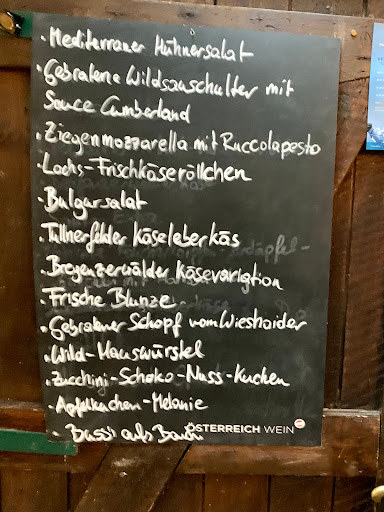 · Mediterraner Hühnersalat
· Gebratene Wildsauschulter mit
Sauce Cumberland
· Ziegenmozzarella mit Ruccolapesto
· Lachs-Frischkäseröllchen
· Bulgursalat
· Tullnerfelder Käseleberkäs
· Bregenzerwälder Käsevariation
· Frische Blunze
· Gebratner Schopf vom Wieshaider
· Wild-Hauswürstel
· Zucchini-Schoko-Nuss-Kuchen
· Apfelkuchen-Melanie
· Bussi aufs Bauxi
ÖSTERREICH WEIN